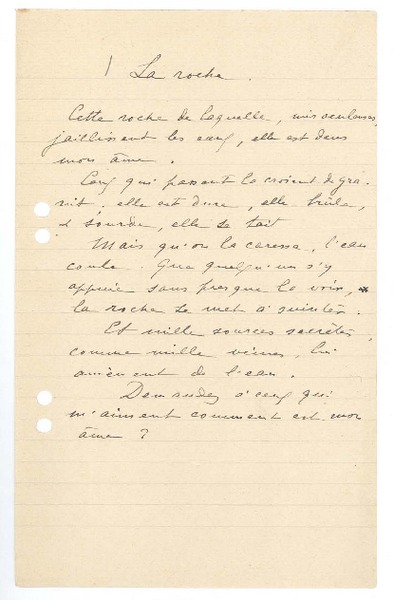 La roche.
Cette roche de laquelle, miraculeuses,
jaillissent les eaux, elle est dans
mon âme.
Ceux qui passent la croient de gra-
nit. elle est dure, elle brûle,
sourde, elle se tait
Mais qu'on la caresse, l'eau
coule. Que quelqu'un s'y
appuie sans presque la voir,
la roche se met à suinter.
Et mille sources secrètes,
comme mille veines,
amènent de l'eau.
Demandez à ceux qui
m'aiment comment est mon
âme?